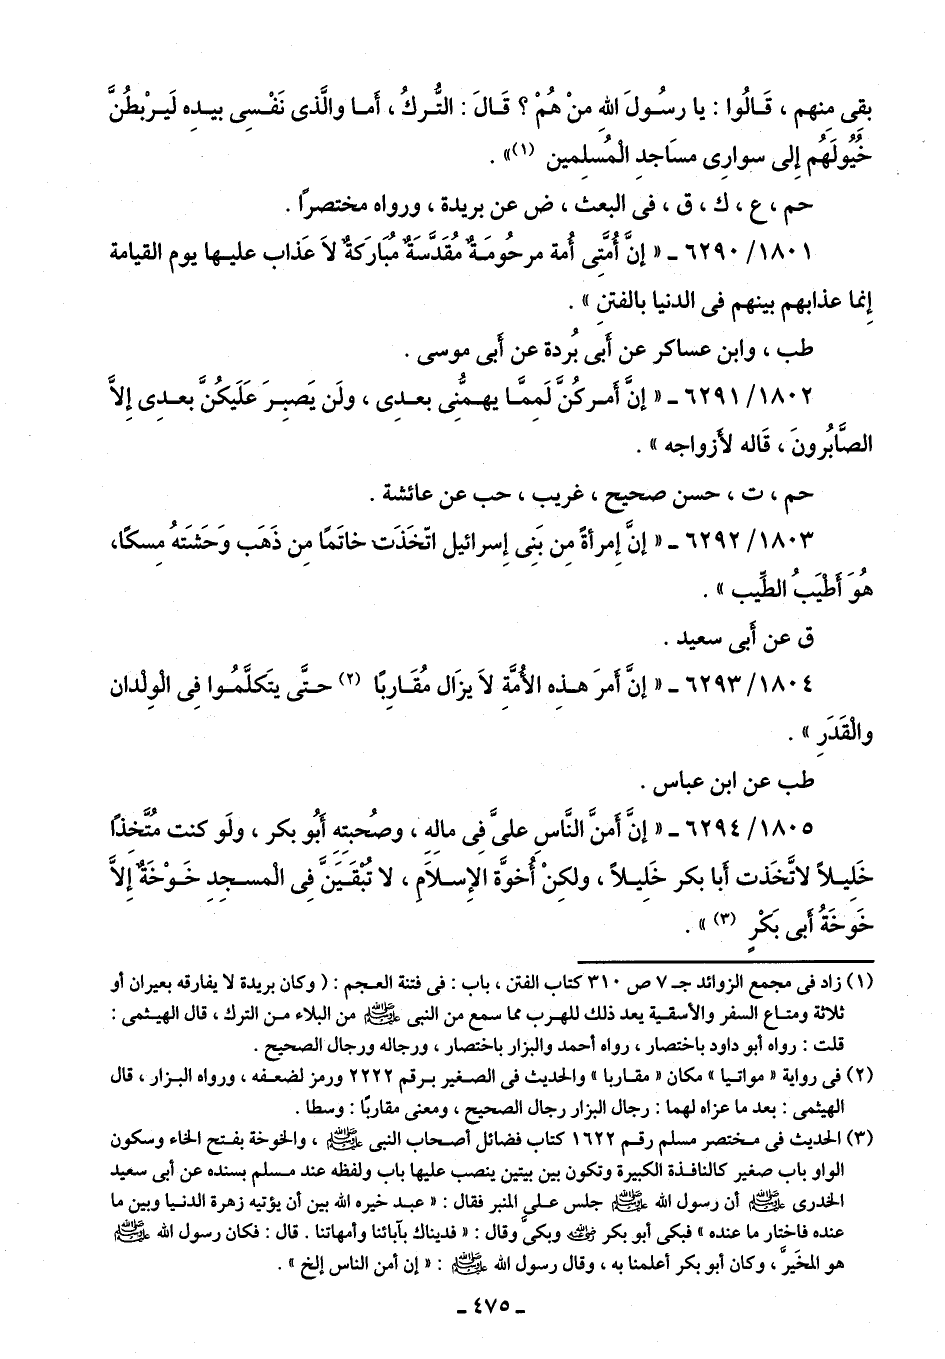 بقى منهم ، قَالُوا : يا رسُولَ اللهِ مِنْ هُمْ ؟ قَالَ : التُّركُ ، أَما والَّذى نَفْسِى بيدِه لَيرْبِطُنَّ
خُيُولَهُم إلى سوارِى مسَاجدِ الْمُسلمين (١)» .
حم ، ع ، ك ، ق ، فى البعث ، ض عن بريدة ، ورواه مختصرًا .
١٨٠١/ ٦٢٩٠ ـ « إنَّ أُمَّتِى أُمة مرحُومَةٌ مُقدَّسَةٌ مُبَاركَةٌ لاَ عَذاب عليها يوم القيامة
إنما عذابهم بينهم فى الدنيا بالفتنِ » .
طب ، وابن عساكر عن أَبى بُردة عن أَبى موسى .
١٨٠٢/ ٦٢٩١ ـ « إنَّ أَمركُنَّ لَمِمَّا يهمُّنِى بعدِى ، ولَن يَصبِرَ عَلَيكُنَّ بعدِى إلاَّ
الصَّابُرونَ ، قَاله لأَزواجه » .
حم ، ت ، حسن صحيح ، غريب ، حب عن عائشة .
١٨٠٣/ ٦٢٩٢ ـ « إنَّ إمرأةً مِن بَنِى إسرائيل اتّخَذَت خاتَمًا مِن ذَهَب وَحَشَتهُ مِسكًا،
هُوَ أَطْيَبُ الطِّيب » .
ق عن أَبى سعيد .
١٨٠٤/ ٦٢٩٣ ـ « إنَّ أَمرَ هذِه الأُمَّةِ لاَ يزَال مُقَاربًا (٢) حتَّى يتَكلَّمُوا فِى الْوِلْدان
والْقَدَرِ » .
طب عن ابن عباس .
١٨٠٥/ ٦٢٩٤ ـ « إنَّ أَمنَّ النَّاسِ علىَّ فى مالِهِ ، وصُحبتِهِ أَبُو بكر ، ولَو كنت مُتَّخِذًا
خَلِيلاً لاتَّخَذت أَبا بكر خَلِيلاً ، ولكِنْ أُخوَّة الإسلاَمِ ، لا تُبْقَيَنَّ فِى الْمسجِدِ خَوْخَةٌ إلاَّ
خَوخَةُ أَبى بَكْرٍ (٣) » .
(١) زاد فى مجمع الزوائد جـ ٧ ص ٣١٠ كتاب الفتن ، باب : فى فتنة العجم : ( وكان بريدة لا يفارقه بعيران أو
ثلاثة ومتاع السفر والأسقية يعد ذلك للهرب مما سمع من النبى ﷺ من البلاء من الترك ، قال الهيثمى :
قلت : رواه أبو داود باختصار ، رواه أحمد والبزار باختصار ، ورجاله ورجال الصحيح .
(٢) فى رواية « مواتيا » مكان « مقاربا » والحديث فى الصغير برقم ٢٢٢٢ ورمز لضعفه ، ورواه البزار ، قال
الهيثمى : بعد ما عزاه لهما : رجال البزار رجال الصحيح ، ومعنى مقاربًا : وسطا .
(٣) الحديث فى مختصر مسلم رقم ١٦٢٢ كتاب فضائل أصحاب النبى ﷺ ، والخوخة بفتح الخاء وسكون
الواو باب صغير كالنافذة الكبيرة وتكون بين بيتين ينصب عليها باب ولفظه عند مسلم بسنده عن أبى سعيد
الخدرى ﷺ أن رسول الله ﷺ جلس على المنبر فقال : « عبد خيره الله بين أن يؤتيه زهرة الدنيا وبين ما
عنده فاختار ما عنده » فبكى أبو بكر رضي الله عنه وبكىَّ وقال : « فديناك بآبائنا وأمهاتنا . قال : فكان رسول الله ﷺ
هو المخَيرَّ ، وكان أبو بكر أعلمنا به ، وقال رسول الله ﷺ : « إن أمن الناس إلخ » .
ـ ٤٧٥ ـ